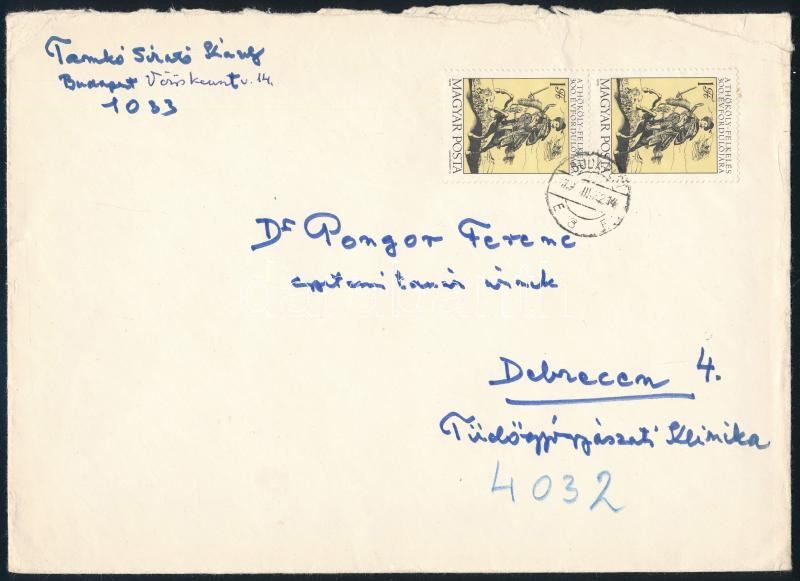 Tamkó Sirató Károly
Budapest Vöröskereszt u. 14.
1033
1 Ft
A THÖKÖLY-FELKELÉS
300 ÉVFORDULÓJÁRA
MAGYAR POSTA
1 Ft
A THÖKÖLY-FELKELÉS
300 ÉVFORDULÓJÁRA
MAGYAR POSTA
Dr Pongor Ferenc
egyetemi tanár úrnak
Debrecen 4.
Tüdőgyógyászati Klinika
4032